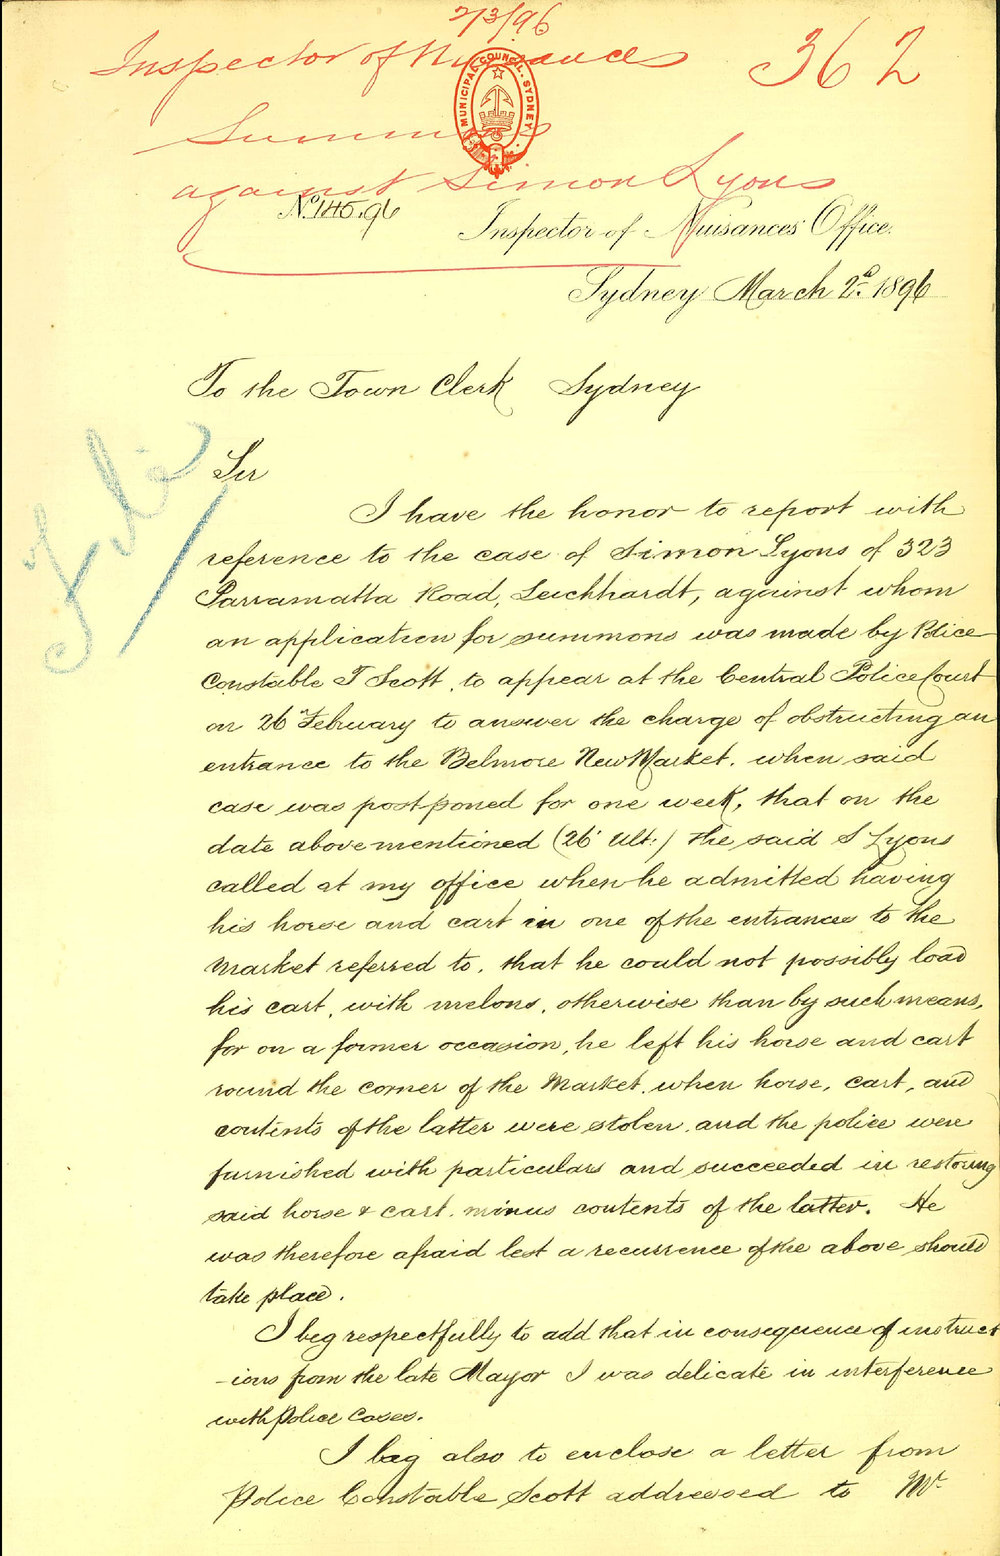 2/3/96
Inspector of Nuisances 362
MUNICIPAL COUNCIL. SYDNEY.
Summons
against Simon Lyons
No. 145.96
Inspector of Nuisances Office.
Sydney March 2d. 1896
To the Town Clerk Sydney
File
Sir
I have the honor to report with
reference to the case of Simon Lyons of 323
Parramatta Road, Leichhardt, against whom
an application for summons was made by Police
Constable T Scott, to appear at the Central Police Court
on 26 February to answer the charge of obstructing an
entrance to the Belmore New Market. when said
case was postponed for one week, that on the
date above mentioned (26 Ult.) the said S Lyons
called at my office when he admitted having
his horse and cart in one of the entrances to the
Market referred to, that he could not possibly load
his cart, with melons, otherwise than by such means,
for on a former occasion, he left his horse and cart
round the corner of the Market, when horse, cart, and
contents of the latter were stolen. and the police were
furnished with particulars and succeeded in restoring
said horse & cart. minus contents of the latter. He
was therefore afraid lest a recurrence of the above should
take place.
I beg respectfully to add that in consequence of instruct
-ions from the late Mayor I was delicate in interference
with Police Cases.
I beg also to enclose a letter from
Police Constable Scott addressed to Mr